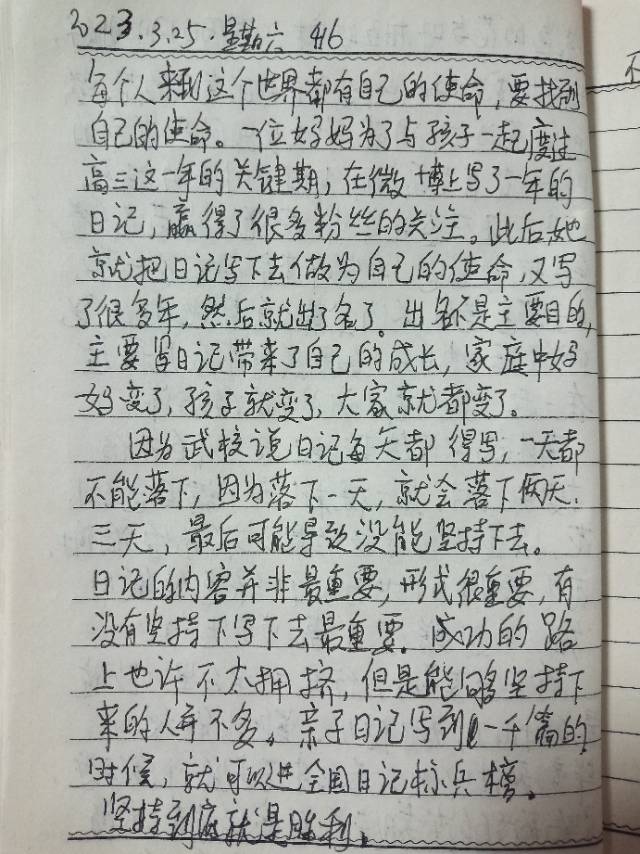 2023.3.25.星期六 416
每个人来到这个世界都有自己的使命，要找到
自己的使命。一位好妈为了与孩子一起度过
高三这一年的关键期，在微博上写了一年的
日记，赢得了很多粉丝的关注。此后她
就把日记写下去做为自己的使命，又写
了很多年，然后就出了名了。出名不是主要目的，
主要写日记带来了自己的成长，家庭中妈
妈变了，孩子就变了，大家就都变了。
因为武校说日记每天都得写，一天都
不能落下，因为落下一天，就会落下俩天、
三天，最后可能导致没能坚持下去。
日记的内容并非最重要，形式很重要，有
没有坚持下写下去最重要。成功的路
上也许不太拥挤，但是能够坚持下
来的人并不多。亲子日记写到一千篇的
时候，就可以进全国日记标兵榜。
坚持到底就是胜利。
不